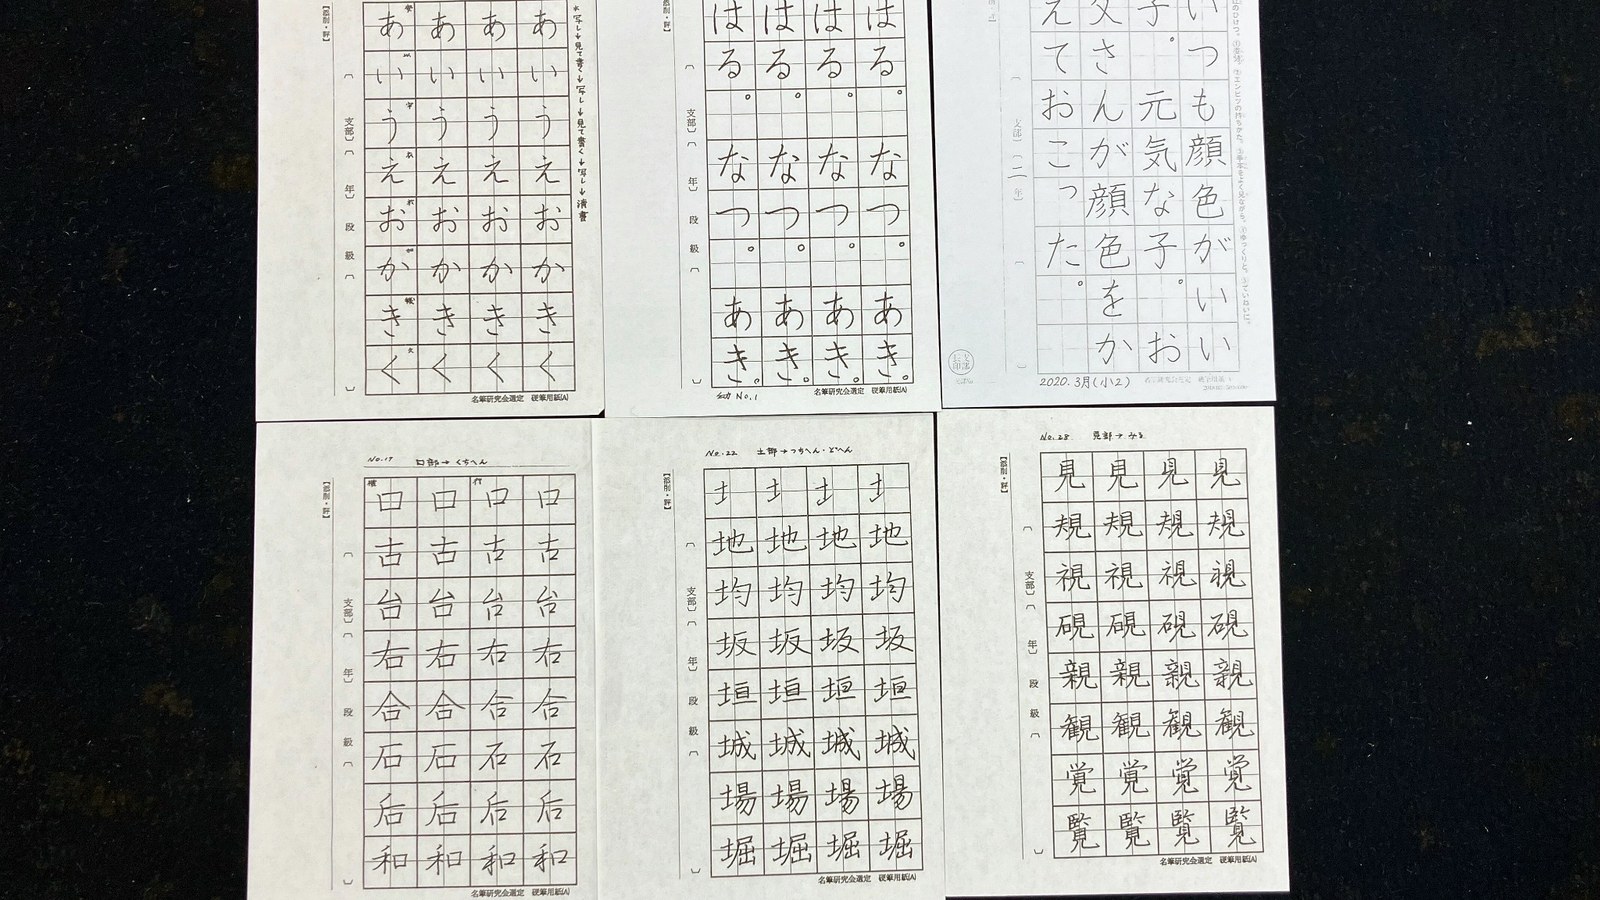 あ あ あ あ
い い い い
う う う う
え え え え
お お お お
か か か か
き き き き
く く く く
写し→見て書く→写し→見て書く→写し→清書
【添削・評】
支部
年
段
級
名筆研究会選定 硬筆用紙(A)
は は は は
る る る る
。 。 。 。
な な な な
つ つ つ つ
。 。 。 。
あ あ あ あ
き。 き。 き。 き。
【添削・評】
支部
年
段
級
幼 No.1
名筆研究会選定 硬筆用紙(A)
いつも顔色がいい
子。元気な子。お
父さんが顔色をか
えておこった。
支部
二年
2020.3月(小2)
No.17 口部→くちへん
口 口 口 口
古 古 古 古
台 台 台 台
右 右 右 右
合 合 合 合
石 石 石 石
后 后 后 后
和 和 和 和
【添削・評】
支部
年
段
級
名筆研究会選定 硬筆用紙(A)
No.22 土部→つちへん・どへん
土 土 土 土
地 地 地 地
均 均 均 均
坂 坂 坂 坂
垣 垣 垣 垣
城 城 城 城
場 場 場 場
堀 堀 堀 堀
【添削・評】
支部
年
段
級
名筆研究会選定 硬筆用紙(A)
No.28 見部→みる
見 見 見 見
規 規 規 規
視 視 視 視
硯 硯 硯 硯
親 親 親 親
観 観 観 観
覚 覚 覚 覚
覧 覧 覧 覧
【添削・評】
支部
年
段
級
名筆研究会選定 硬筆用紙(A)